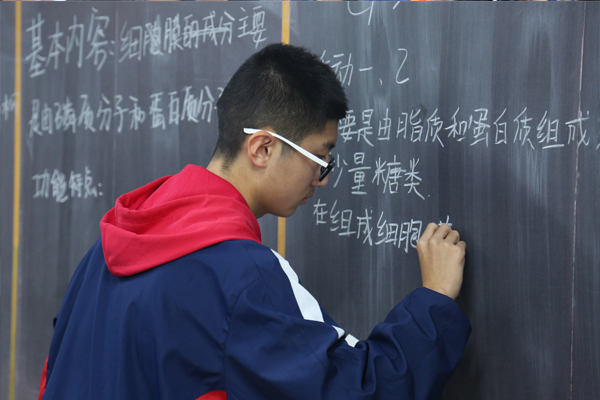 基本内容:细胞膜的成分主要
是由磷质分子和蛋白质分
功能特点:
动一、2
要是由脂质和蛋白质组成
少量糖类.
在组成细胞